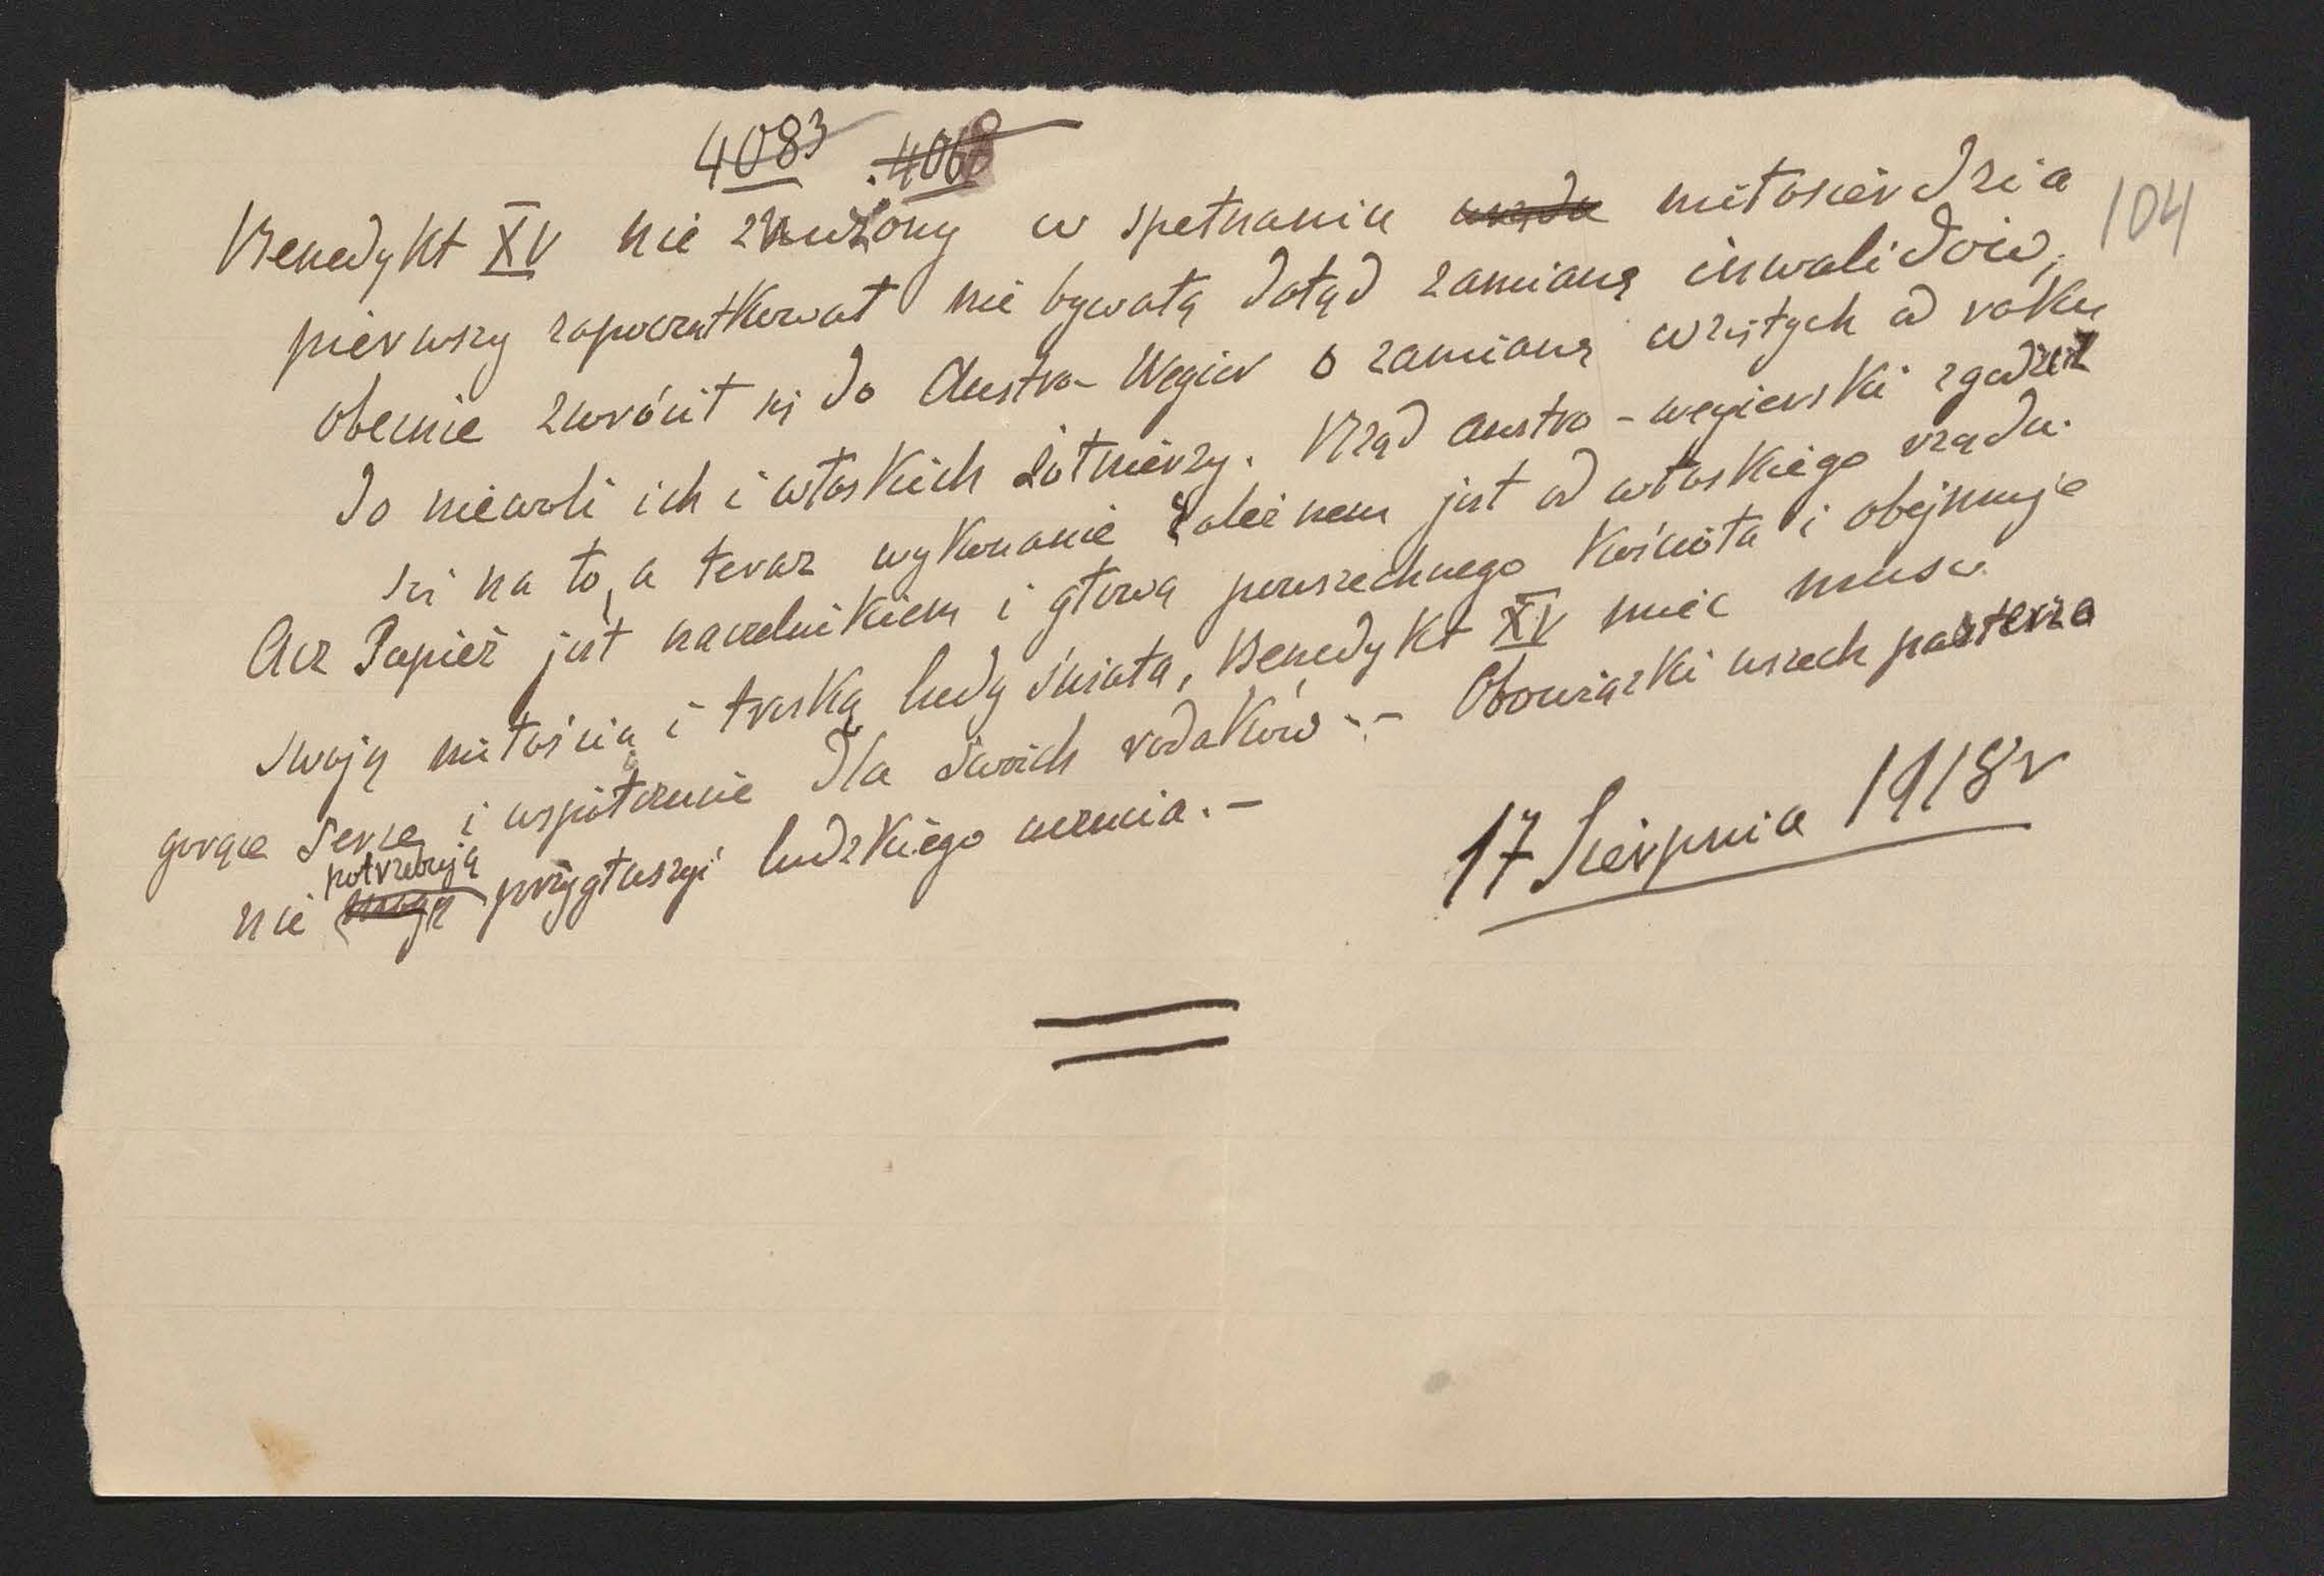 4083 4068
104
Benedykt XV nie znużony w spełnaniu miłosierdzia
pierwszy zapoczątkował nie bywałą dotąd zamianą inwalidów,
obecnie zwrócił się do Austro-Węgier o zamianą wziętych od roku
do niewoli ich i włoskich żołnierzy. Rząd austro-węgierski zgodził
się na to, a teraz wykonanie zależnem jest od włoskiego rządu.
Acz Papież jest naczelnikiem i głową powszechnego Kościoła i obejmuje
swoją miłością i troską ludy świata, Benedykt XV mieć musi
gorące serce i współczucie dla swoich rodaków.- Obowiązki wszech pasterza
nie potrzebują przygłuszyć ludzkiego uczucia.-
17 Sierpnia 1918 r